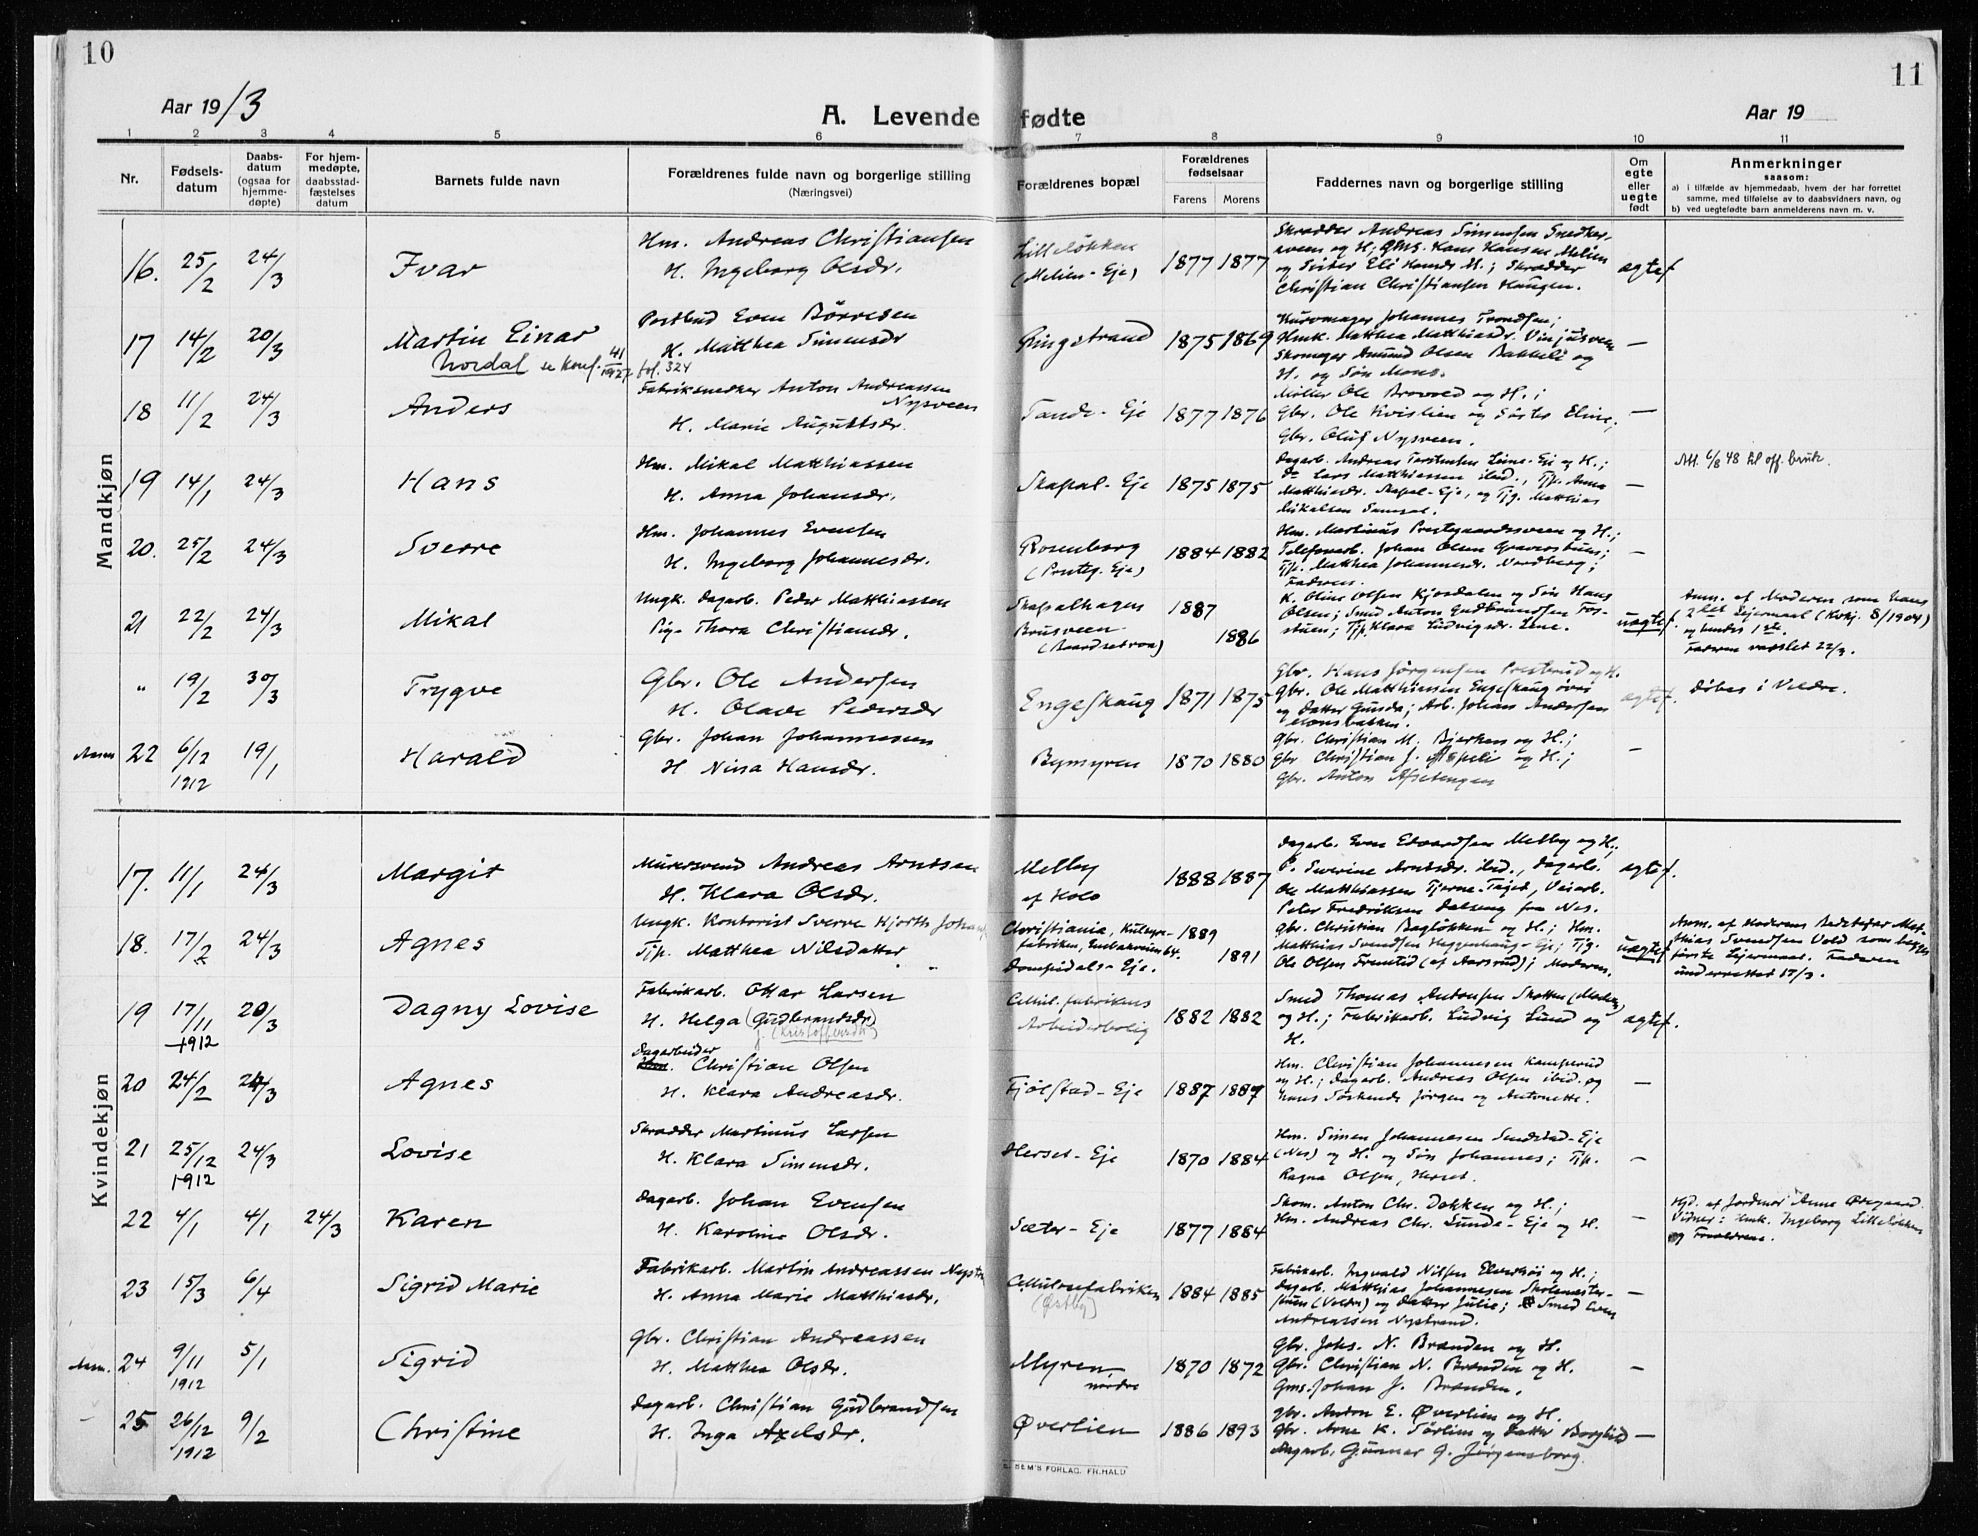 10
11
Aar 1913
A. Levende fødte
Aar 19
1 2 3 4 5 6 7 8 9 10 11
Nr.
Fødsels-
datum
Daabs-
datum
(ogsaa for
hjemme-
døpte)
For hjem-
medøpte,
daabsstad-
fæstelses
datum
Barnets fulde navn
Forældrenes fulde navn og borgerlige stilling
(Næringsvei)
Forældrenes bopæl
Forældrenes
fødselsaar
Farens Morens
Faddernes navn og borgerlige stilling
Om
egte
eller
uegte
født
Anmerkninger
saasom:
a) i tilfælde av hjemmedaab, hvem der har forrettet
samme, med tilføielse av to daabsvidners navn, og
b) ved uegtefødte barn anmelderens navn m. v.
Mandkjøn
16. 25/2 24/3 Ivar
Hm. Andreas Christiansen
H. Ingeborg Olsdr.
Lilleløkken
(Melien-Eje)
1877 1877
Skrædder Andreas Simensen Snedker-
sveen og H; Gms. Hans Hansen Melien
og Søster Eli Hansdr M.; Skrædder
Christian Christiansen Haugen.
egtef.
17 14/2 20/3 Martin Einar
Nordal se konf. 41/1927 fol. 324
Postbud Even Børresen
H. Matthea Simensdr
Ringstrand
1875 1869
Kurvmager Johannes Trondsen;
Hmk. Matthea Matthiasdr. Vinjusveen
Skomager Amund Olsen Bakkeli og
H. og Søn Mons.
—
18 11/2 24/3 Anders
Anton Andreassen
Nysveen
H. Marie Augustsdr.
Tande-Eje
1877 1876
Møller Ole Brovold og H.;
Gbr. Ole Kvislien og Søster Eline;
Gbr. Oluf Nysveen.
—
19 14/1 24/3 Hans
Hm. Mikal Matthiassen
H. Anna Johansdr.
Skapal-Eje
1875 1875
Dagarb. Andreas Torstensen Leine-Eje og H.;
Do Lars Matthiassen ibid., Tjp. Anna
Matthiasdr. Skapal-Eje, og Tjg. Matthias
Mikalsen
—
Att. 6/8 48 til off. bruk.
20. 25/2 24/3 Sverre
Hm. Johannes Evensen
H. Ingeborg Johannesdr.
Rosenborg
(Presteg. Eje)
1884 1882
Hm. Martinus Prestegaardssveen og H.;
Telefonarb. Johan Olsen
Tjp. Matthea Johannesdr. Nordberg;
Faderen.
—
21 22/2 24/3 Mikal
Ungk. Dagarb. Peder Matthiassen
Pig. Thora Christiansdr.
Skapalhagen
Brusveen
(Baardsetroa)
1887
1886
K. Oline Olsen Kjosdalen og Søn Hans
Olsen; Smed Anton Gudbrandsen
stuen; Tjp. Klara Ludvigsdr. Lene.
uegtef.
Anm. af Moderen som hans
2det Leiermaal (Kvkj. 8/1904)
og hendes 1ste.
Faderen varslet 22/3.
" 19/2 30/3 Trygve
Gbr. Ole Andersen
H. Olave Pedersdr
Engeskaug
1871 1875
Gbr. Hans Jørgensen Presterud og H.
Gbr. Ole Matthiassen Engeskaug øvre
og Datter Gunda; Arb. Johan Andersen
egtef.
døbes i Veldre.
22 6/12 1912 19/1 Harald
Gbr. Johan Johannessen
H Nina Hansdr.
Bymyren
1870 1880
Gbr. Christian M. Bjerken og H.;
Gbr Christian J. Aspeli og H.;
Gbr. Anton Afsetengen
—
Kvindekjøn
17. 11/1 24/3 Margit
Murersvend Andreas Arntsen
H. Klara Olsdr.
Melby
af Holo
1888 1887
Dagarb. Even Edvardsen Melby og H.;
P. Severine Arntsdr. ibid., Dagarb.
Ole Matthiassen Tjerne-Taget, Veiarb.
Peter Fredriksen Dalseng fra Nes.
egtef.
18. 17/2 24/3 Agnes
Ungk. Kontorist Sverre Hjorth
Tjp. Matthea Nilsdatter
Christiania,
Domprdals-Eje.
1889
1891
gbr. Christian Bagløkken og H.; Hm.
Matthias Svendsen Heggenhaug-Eje; Tjg.
Ole Olsen Fremtid (af Aarsrud); Moderen.
uegtef
Anm. af Moderens Bedstefar Mat-
thias Svendsen Vold som begges
første Leiermaal. Faderen
underrettet 17/3.
19 17/11 1912 20/3 Dagny Lovise
Fabrikarb. Ottar Larsen
H. Helga (Gudbrandsdr)
(Kristoffersdr)
Cellul.fabrikens
Arbeiderbolig
1882 1882
Smed Thomas Antonsen Skotten
og H.; Fabrikarb. Ludvig Lund og
H.
egtef.
20 24/2 24/3 Agnes
Dagarbeider
Christian Olsen
H. Klara Andreasdr.
Fjølstad-Eje
1887 1889
Hm. Christian Johannesen Kamperud
og H.; Dagarb. Andreas Olsen ibid. og
hans Søskende Jørgen og Antonette.
—
21 25/12 1912 24/3 Lovise
Skrædder Martinus Larsen
H. Klara Simensdr.
Herset-Eje
1870 1884
Hm. Simen Johannesen Sendstad-Eje
(Nes) og H. og Søn Johannes; Tjp.
Ragna Olsen, Herset.
—
22 4/1 4/1 24/3 Karen
Dagarb. Johan Evensen
H. Karoline Olsdr.
Sæter-Eje
1877 1884
Skom. Anton Chr. Dokken og H.;
Hm. Andreas Chr. Lunde-Eje og H.
—
Hjd. af Jordmor Anne Øregaard
Vidner: Hmk. Ingeborg Lilleløkken
og Forældrene.
23 15/3 6/4 Sigrid Marie
Fabrikarb. Martin Andreassen
H. Anna Marie Matthiasdr.
Cellulosefabriken
(Østby)
1884 1885
Fabrikarb. Ingvald Nilsen Elverhøi og H.;
Dagarb. Matthias Johannesen Skolemester-
stuen (Veldre) og Datter Julie; Smed Even
Andreassen Nystrand.
—
24 9/11 1912 5/1 Sigrid
Gbr. Christian Andreassen
H. Matthea Olsdr.
Myren
nordre
1870 1872
Gbr. Johs. N. Brænden og H.
Gbr. Christian N. Brænden og H.
Gms. Johan J. Brænden.
—
25 26/12 1912 9/2 Christine
Dagarb. Christian Gudbrandsen
H. Inga Axelsdr.
Øverlien
1886 1893
gbr. Anton E. Øverlien og H.
Gbr. Arne K. Sørlien og Datter Borghild
Dagarb. Gunnar G. Jørgensborg.
—
SEM'S FORLAG. FR.HALD